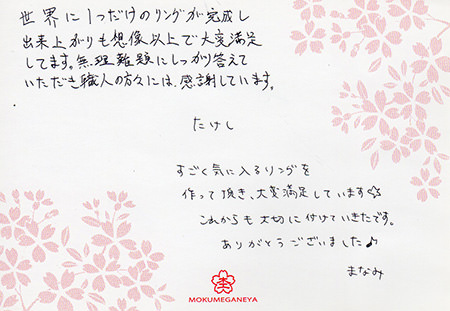 世界に1つだけのリングが完成し
出来上がりも想像以上で大変満足
してます。無理難題にしっかり答えて
いただき職人の方々には、感謝しています。
たけし
すごく気に入るリングを
作って頂き、大変満足しています☆
これからも大切に付けていきたです。
ありがとうございました♪
まなみ
MOKUMEGANEYA